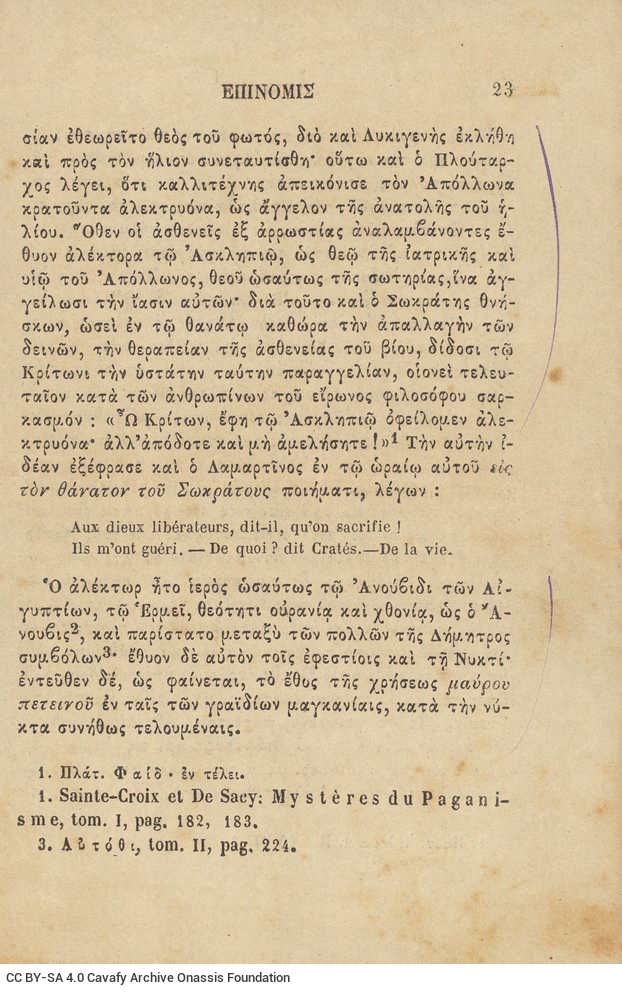 ΕΠΙΝΟΜΙΣ 23
σίαν ἐθεωρεῖτο θεὸς τοῦ φωτός, διὸ καὶ Λυκιγενὴς ἐκλήθη
καὶ πρὸς τὸν ἥλιον συνεταυτίσθη· οὕτω καὶ ὁ Πλούταρ-
χος λέγει, ὅτι καλλιτέχνης ἀπεικόνισε τὸν Ἀπόλλωνα
κρατοῦντα ἀλεκτρυόνα, ὡς ἄγγελον τῆς ἀνατολῆς τοῦ ἡ-
λίου. Ὅθεν οἱ ἀσθενεῖς ἐξ ἀρρωστίας ἀναλαμβάνοντες ἔ-
θυον ἀλέκτορα τῷ Ἀσκληπιῷ, ὡς θεῷ τῆς ἰατρικῆς καὶ
υἱῷ τοῦ Ἀπόλλωνος, θεοῦ ὡσαύτως τῆς σωτηρίας,ἵνα ἀγ-
γείλωσι τὴν ἴασιν αὐτῶν· διὰ τοῦτο καὶ ὁ Σωκράτης θνή-
σκων, ὡσεὶ ἐν τῷ θανάτῳ καθώρα τὴν ἀπαλλαγὴν τῶν
δεινῶν, τὴν θεραπείαν τῆς ἀσθενείας τοῦ βίου, δίδοσι τῷ
Κρίτωνι τὴν ὑστάτην ταύτην παραγγελίαν, οἱονεὶ τελευ-
ταῖον κατὰ τῶν ἀνθρωπίνων τοῦ εἴρωνος φιλοσόφου σαρ-
κασμόν : «Ὦ Κρίτων, ἔφη τῷ Ἀσκληπιῷ ὀφείλομεν ἀλε-
κτρυόνα· ἀλλ'ἀπόδοτε καὶ μὴ ἀμελήσητε !»1 Τὴν αὐτὴν ἰ-
δέαν ἐξέφρασε καὶ ὁ Λαμαρτῖνος ἐν τῷ ὡραίῳ αὐτοῦ εἰς
τὸν θάνατον τοῦ Σωκράτους ποιήματι, λέγων :
Aux dieux libérateurs, dit-il, qu'on sacrifie !
Ils m'ont guéri. — De quoi ? dit Cratés.—De la vie.
Ὁ ἀλέκτωρ ἦτο ἱερὸς ὡσαύτως τῷ Ἀνούβιδι τῶν Αἰ-
γυπτίων, τῷ Ἑρμεῖ, θεότητι οὐρανίᾳ καὶ χθονίᾳ, ὡς ὁ Ἄ-
νουβις2, καὶ παρίστατο μεταξὺ τῶν πολλῶν τῆς Δήμητρος
συμβόλων3· ἔθυον δὲ αὐτὸν τοῖς ἐφεστίοις καὶ τῇ Νυκτί·
ἐντεῦθεν δέ, ὡς φαίνεται, τὸ ἔθος τῆς χρήσεως μαύρου
πετεινοῦ ἐν ταῖς τῶν γραϊδίων μαγκανίαις, κατὰ τὴν νύ-
κτα συνήθως τελουμέναις.
1. Πλάτ. Φαίδ· ἐν τέλει.
1. Sainte-Croix et De Sacy: Mystères du Pagani-
sme, tom. I, pag. 182, 183.
3. Αὐτόθι, tom. II, pag. 224.
CC BY-SA 4.0 Cavafy Archive Onassis Foundation